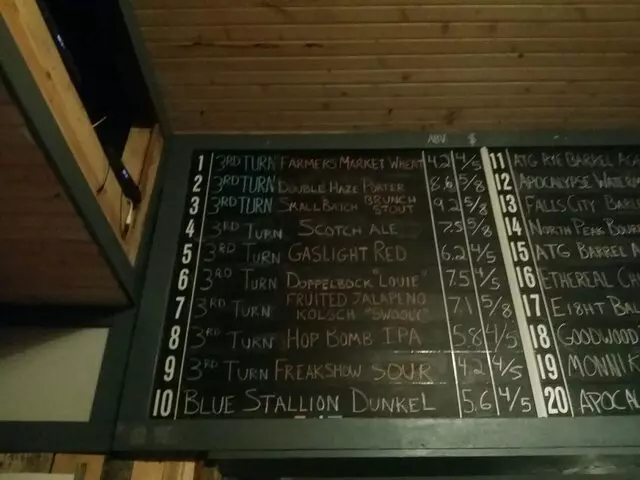 ABV $
1 3RD TURN FARMERS MARKET WHEAT 4.2 4/5
2 3RD TURN DOUBLE HAZE PORTER 8.6 5/8
3 3RD TURN SMALL BATCH BRUNCH STOUT 9.2 5/8
4 3RD TURN SCOTCH ALE 7.5 5/8
5 3RD TURN GASLIGHT RED 6.2 4/5
6 3RD TURN DOPPELBOCK "LOUIE" 7.5 4/5
7 3RD TURN FRUITED JALAPENO KOLSCH 7.1 5/8
8 3RD TURN HOP BOMB IPA 5.8 4/5
9 3RD TURN FREAKSHOW SOUR 4.2 4/5
10 BLUE STALLION DUNKEL 5.6 4/5
11 ATG RYE BARREL
12 APOCALYPSE
13 FALLS CITY
14 NORTH PEAK
15 ATG BARREL
16 ETHEREAL
17 EI8HT
18 GOODWOOD
19 MONNIK
20